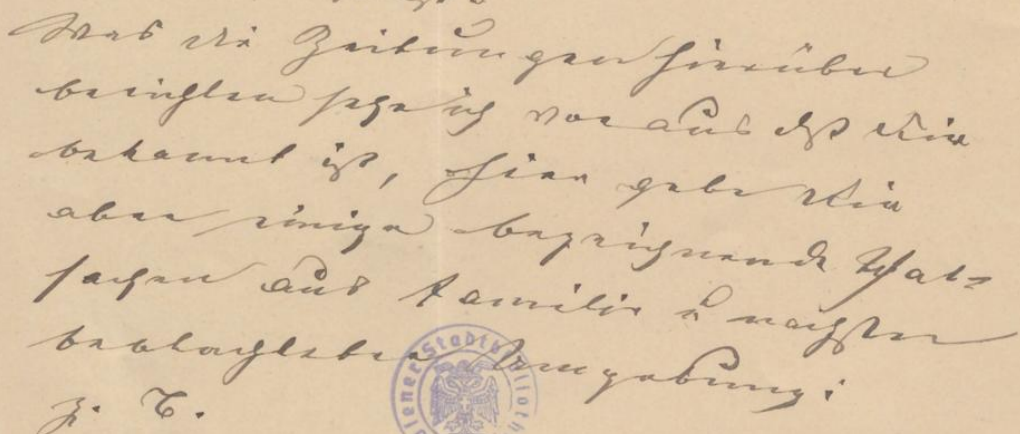 Was die Zeitungen hierüber
berichten setze ich voraus dß Dir
bekannt ist, hier gebe Dir
aber einige bezeichnende That=
sachen aus Familie u nächster
beobachteter Umgebung:
z. B.
Wiener Stadtbiblioth